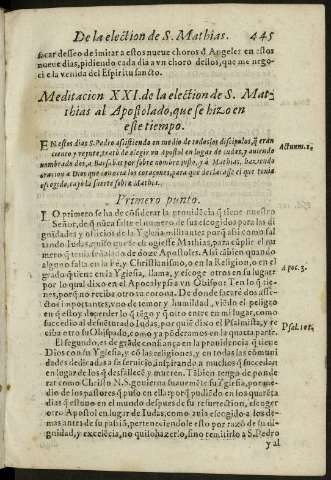 De la election de S. Mathias. 445
sacar desseo de imitar a estos nueve choros d Angeles en estos
nueve dias, pidiendo cada dia a vn choro dellos, que me nego-
cie la venida del Espiritu sancto.
Meditacion XXI. de la election de S. Mat-
thias al Apostolado, que se hizo en
este tiempo.
EN estos dias S. Pedro assistiendo en medio de todos los discipulos, q̃ eran
ciento y veynte, trato de elegir vn Apostol en lugar de Iudas, y auiendo
nombrado dos, a Barsabas por sobre nombre justo, y a Mathias, haziendo
oracion a Dios que conocia los coraçones, para que declarasse el que tenia
escogido, cayò la suerte sobre Mathias.
Actuum. 1.
Primero punto.
LO primero se ha de considerar la prouidẽcia q̃ tiene nuestro
Señor, de q̃ nũca falte el numero de sus escogidos para las di-
gnidades y officios de la Yglesia militante: porq̃ assi como fal-
tando Iudas, quiso que se eligiesse Mathias, para cũplir el nu-
mero q̃ tenia señalado de doze Apostoles. Ahi tãbien quando
alguno falta en la Fe, y Christianismo, o en la Religion, o en el
grado q̃ tiene en la Yglesia, llama, y escoge otros en su lugar
por lo qual dixo en el Apocalypsi a vn Obispo: Ten lo q̃ tie-
nes, porq̃ no reciba otro su corona. De donde sacarè dos affec-
tos importantes, vno de temor y humildad, viẽdo el peligro
en q̃ estoy, de perder lo q̃ tẽgo y q̃ otro entre en mi lugar, como
succedio al desuẽturado Iudas, por quiẽ dixo el Psalmista, y re-
ciba otro su Obispado, como ya põderamos en la quarta parte.
Apoc. 3.
Psal. 108.
El segundo, es de grãde confiança en la prouidencia q̃ tiene
Dios con su Yglesia, y cõ las religiones, y en todas las comuni
dades dedicadas a su seruicio, inspirando a muchos q̃ succedan
en lugar de los q̃ desfallecẽ y mueren. Tãbien tengo de ponde
rar como Christo N. S. gouierna suauemẽte su Yglesia, por me-
dio de los pastores q̃ puso en ella: porq̃ pudiẽdo en los quarẽta
dias q̃ estuuo en el mundo despues de su resurrection, escoger
otro Apostol en lugar de Iudas, como auia escogido a los de-
mas antes de su passiõ, perteneciendole esto por razõ de su di-
gnidad, y excelẽcia, no quiso hazerlo, sino remitirlo a S. Pedro
y al